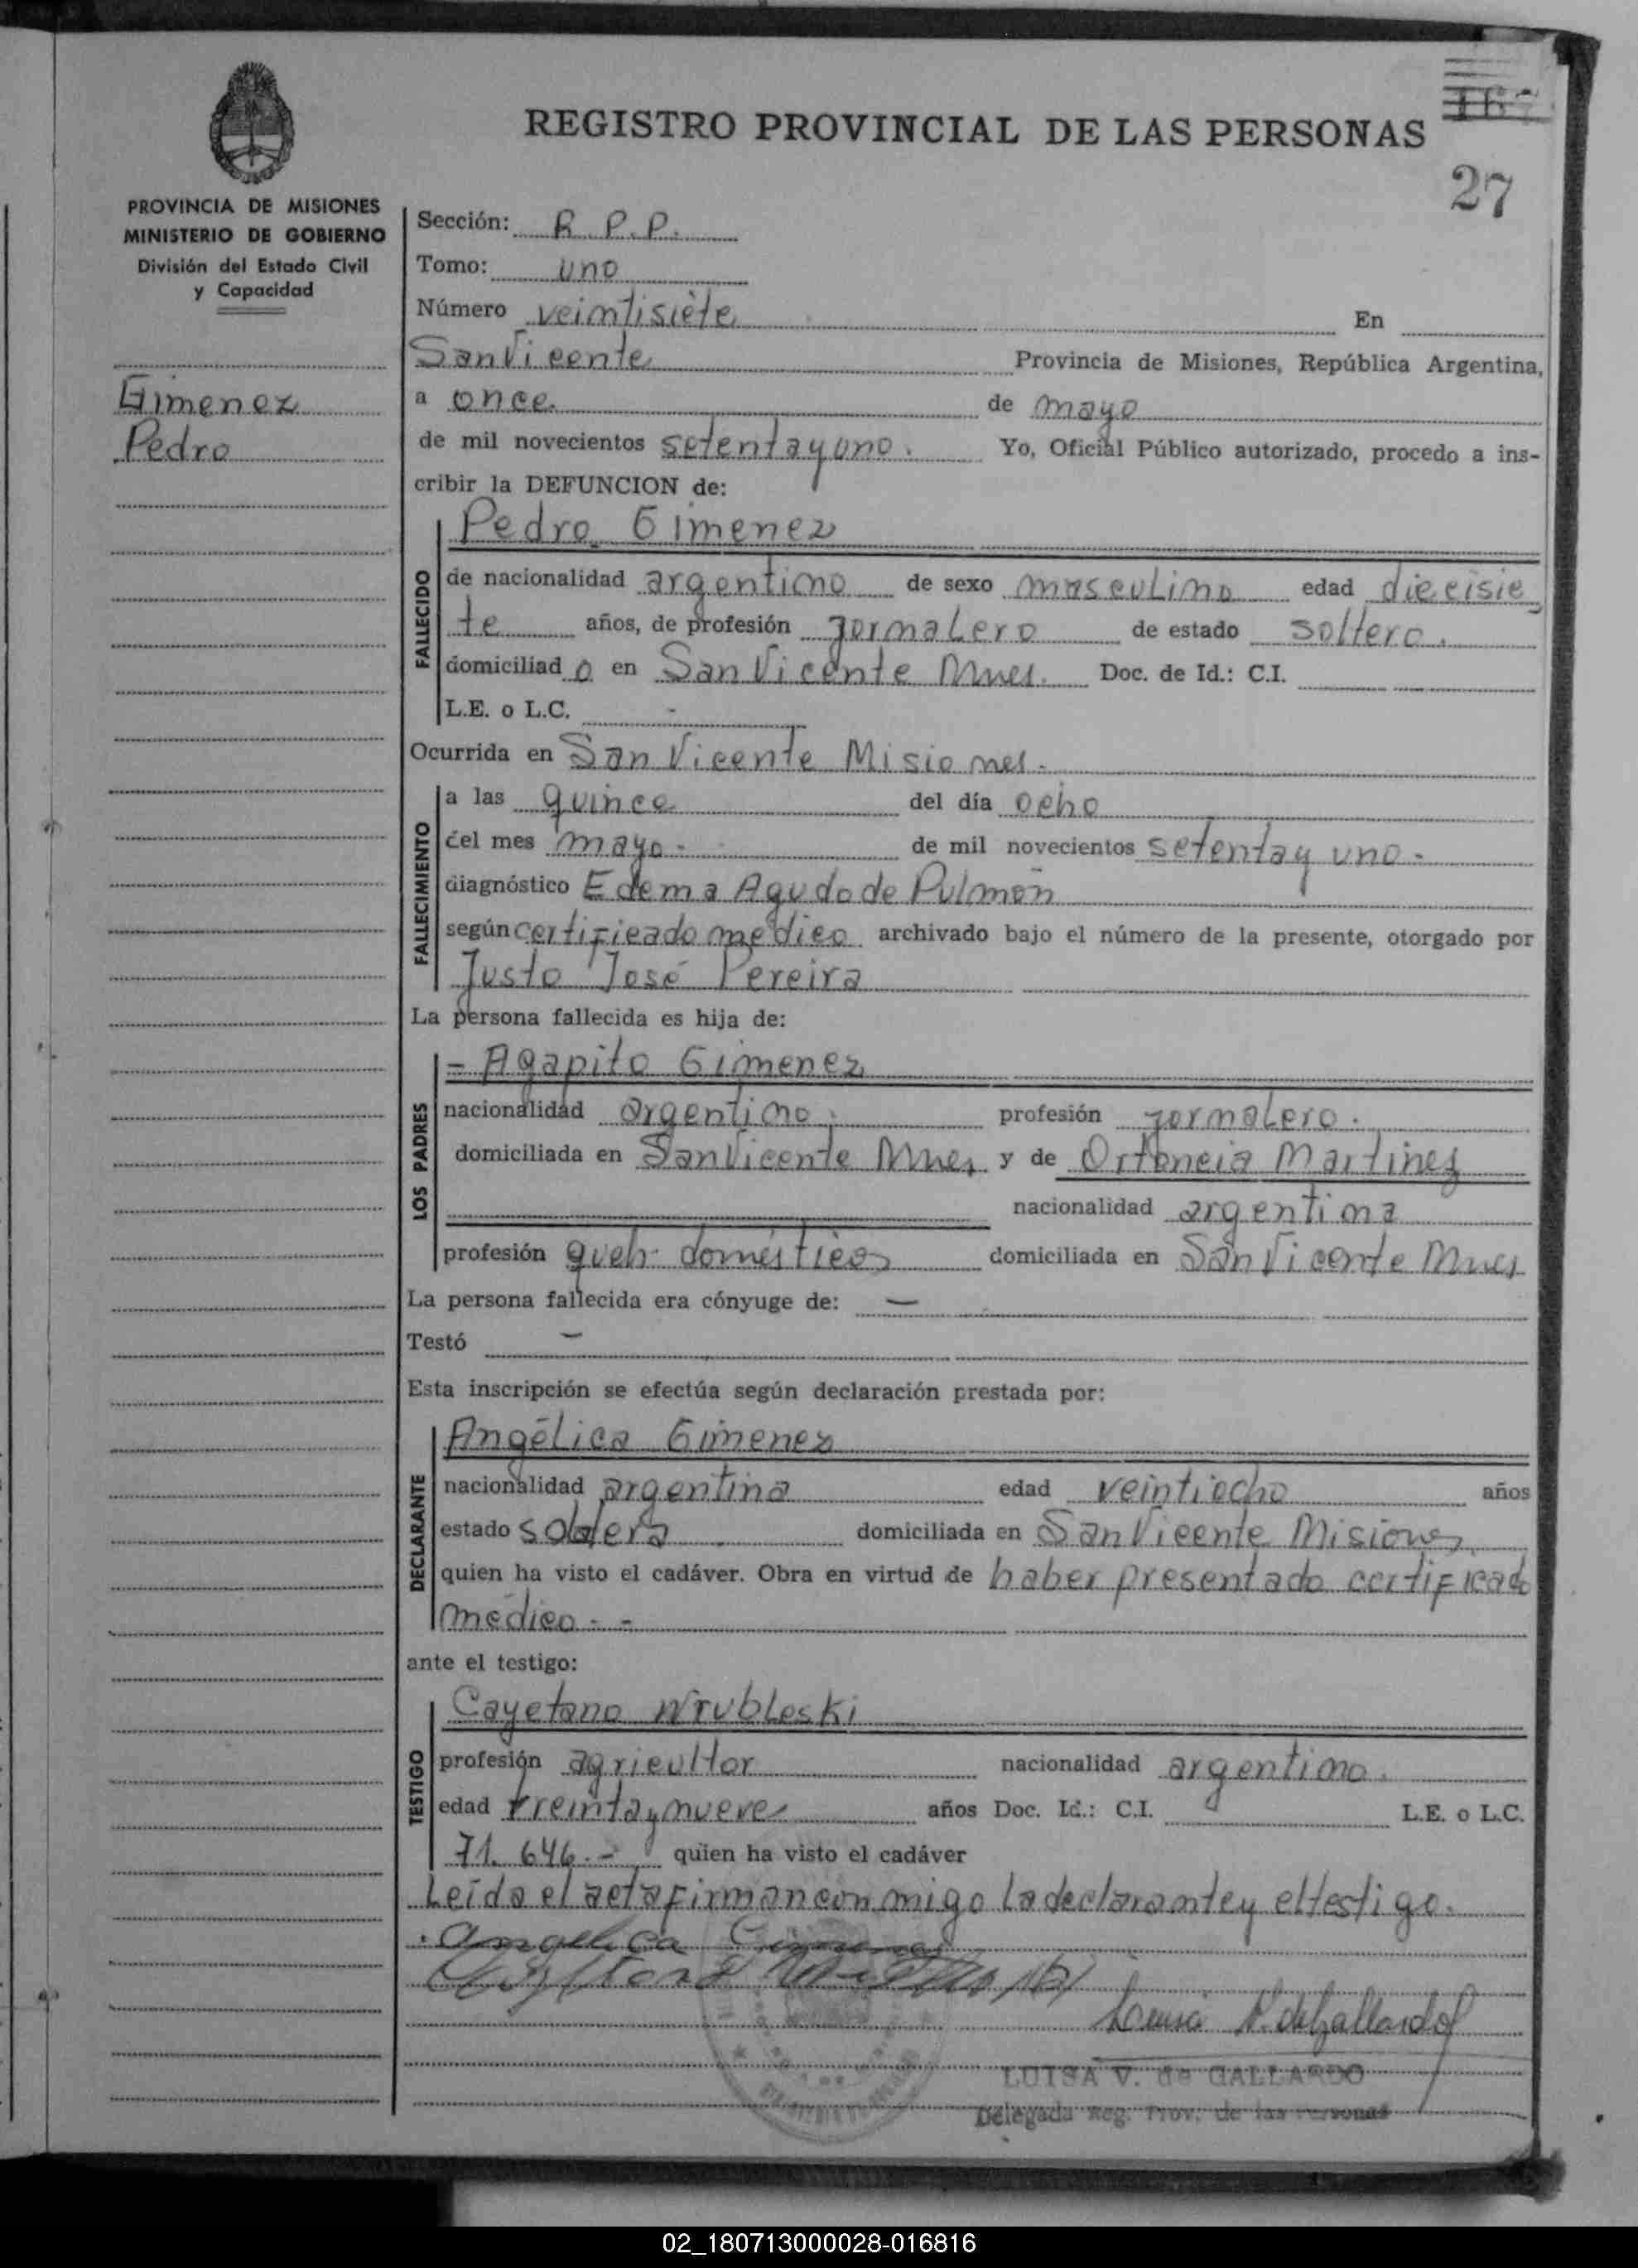 REGISTRO PROVINCIAL DE LAS PERSONAS
167
27
PROVINCIA DE MISIONES
MINISTERIO DE GOBIERNO
División del Estado Civil
y Capacidad
Gimenez
Pedro
Sección: R. P. P.
Tomo: uno
Número veintisiete En
San Vicente Provincia de Misiones, República Argentina,
a once de mayo
de mil novecientos setenta y uno. Yo, Oficial Público autorizado, procedo a ins-
cribir la DEFUNCION de:
FALLECIDO
Pedro Gimenez
de nacionalidad argentino de sexo masculino edad diecisie
te años, de profesión jornalero de estado soltero.
domiciliad o en San Vicente Mnes. Doc. de Id.: C.I.
L.E. o L.C. -
Ocurrida en San Vicente Misiones.
FALLECIMIENTO
a las quince del día ocho
del mes mayo - de mil novecientos setenta y uno.
diagnóstico Edema Agudo de Pulmón
según certificado médico archivado bajo el número de la presente, otorgado por
Justo José Pereira
La persona fallecida es hija de:
LOS PADRES
- Agapito Gimenez
nacionalidad argentino. profesión jornalero.
domiciliada en San Vicente Mnes y de Ortencia Martinez
nacionalidad argentina
profesión queh. domésticos domiciliada en San Vicente Mnes
La persona fallecida era cónyuge de: —
Testó -
Esta inscripción se efectúa según declaración prestada por:
DECLARANTE
Angélica Gimenez
nacionalidad argentina edad veintiocho años
estado soltera domiciliada en San Vicente Misiones.
quien ha visto el cadáver. Obra en virtud de haber presentado certificado
médico - -
ante el testigo:
TESTIGO
Cayetano Wrubleski
profesión agricultor nacionalidad argentino.
edad treinta y nueve años Doc. Id.: C.I. L.E. o L.C.
71.646.- quien ha visto el cadáver
Leída el acta firman conmigo la declarante y el testigo.
Angelica Gimenez
Luisa V. de Gallardo
LUISA V. de GALLARDO
Delegada Reg. Prov. de las Personas
02_180713000028-016816